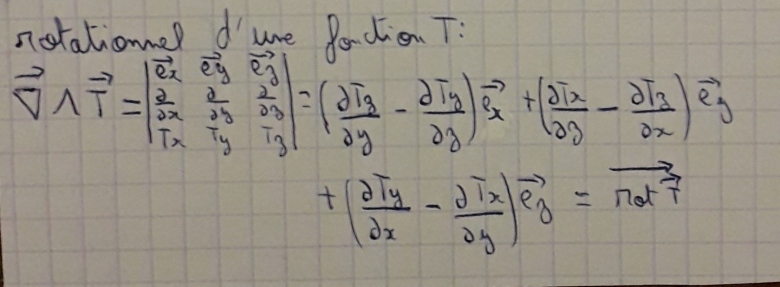 rotationnel d'une fonction T:
∇⃗ ∧ T⃗ = | e⃗x e⃗y e⃗z ; ∂/∂x ∂/∂y ∂/∂z ; Tx Ty Tz | = (∂Tz/∂y - ∂Ty/∂z) e⃗x + (∂Tx/∂z - ∂Tz/∂x) e⃗y
+ (∂Ty/∂x - ∂Tx/∂y) e⃗z = rot T⃗